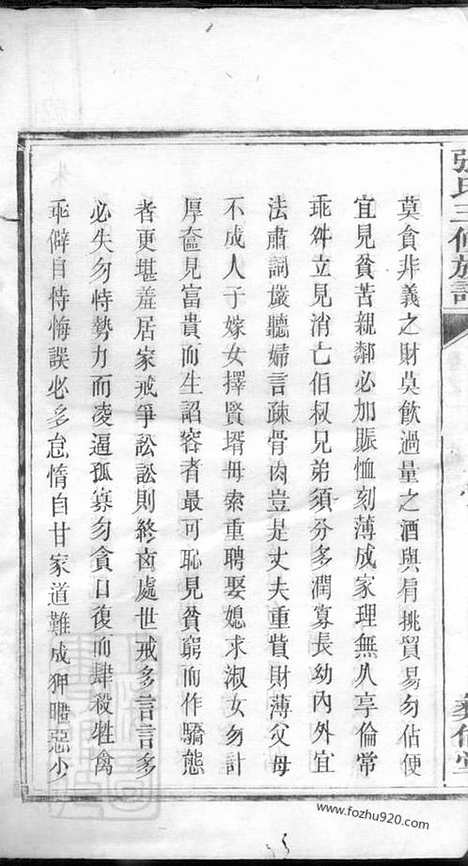 張氏三修族譜
莫貪非義之財莫飲過量之酒與肩挑貿易勿佔便
宜見貧苦親鄰必加賑恤刻薄成家理無久享倫常
乖舛立見消亡伯叔兄弟須分多潤寡長幼內外宜
法肅詞嚴聽婦言疎骨肉豈是丈夫重貲財薄父母
不成人子嫁女擇賢壻毋索重聘娶媳求淑女勿計
厚奩見富貴而生諂容者最可恥見貧窮而作驕態
者更堪羞居家戒爭訟訟則終凶處世戒多言言多
必失勿恃勢力而凌逼孤寡勿貪口復而肆殺牲禽
乖僻自恃悔誤必多怠惰自甘家道難成狎暱惡少
www.fozhu920.com